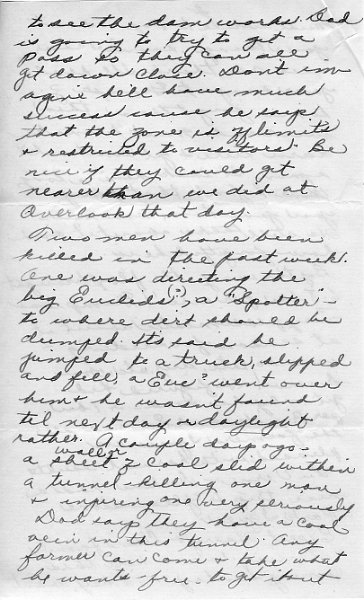 to see the dam works. Dad
is going to try to get a
pass so they can all
get down close. Don't im-
agine he'll have much
success cause he says
that the zone is off limits
& restricted to visitors. Be
nice if they could get
nearer than we did at
Overlook that day.
Two men have been
killed in the past week.
One was directing the
big Euclids (?), a "Spotter" -
to where dirt should be
dumped. It's said he
jumped to a truck, slipped
and fell, a "Euc" went over
him & he wasn't found
til next day or daylight
rather. A couple days ago -
wall or
a sheet of coal slid within
a tunnel - killing one man
& injuring one very seriously
Dad says they have a coal
vein in this tunnel. Any
farmer can come & take what
he wants - free - to get it out